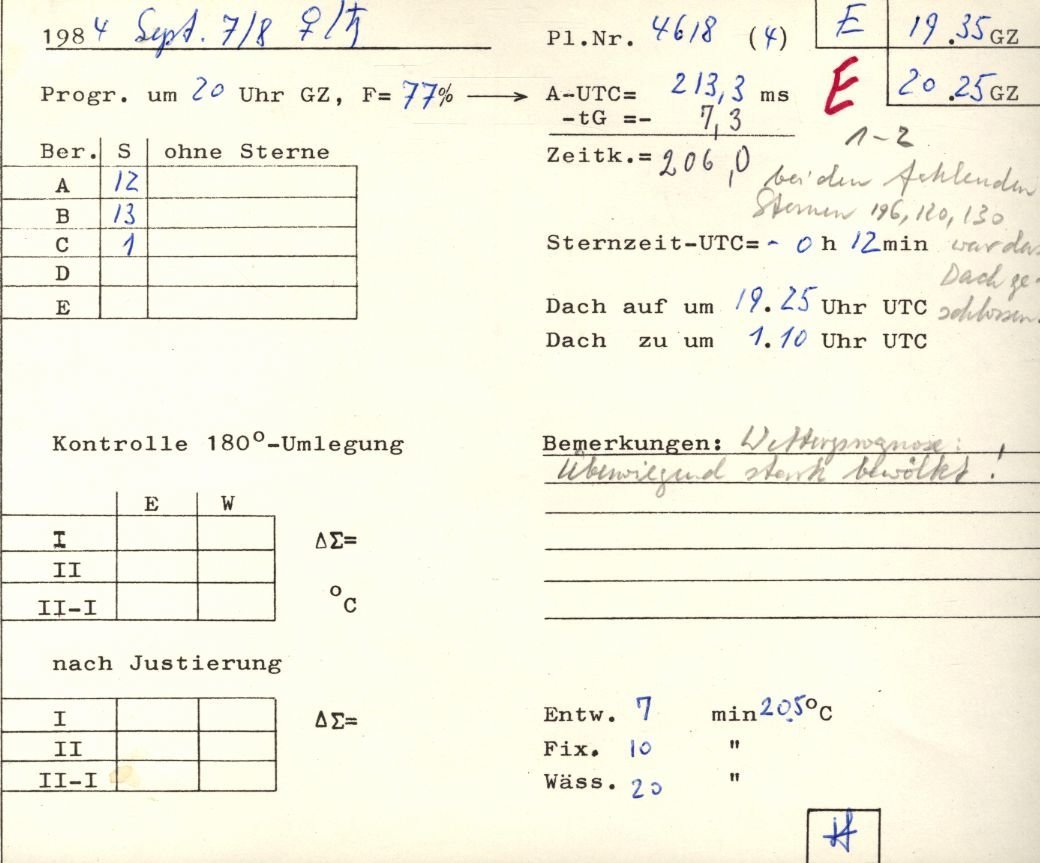 1984 Sept. 7/8 ♀/♄
Pl.Nr. 4618 (4)
E 19.35 GZ
E 20.25 GZ
Progr. um 20 Uhr GZ, F= 77% → A-UTC= 213,3 ms
-tG =- 7,3
Zeitk.= 206,0
1-2
bei den fehlenden
Sternen 196, 120, 130
war das
Dach ge-
schlossen.
Ber. S ohne Sterne
A 12
B 13
C 1
D
E
Sternzeit-UTC= - 0 h 12 min
Dach auf um 19.25 Uhr UTC
Dach zu um 1.10 Uhr UTC
Kontrolle 180°-Umlegung
E W
I ΔΣ=
II
II-I °C
Bemerkungen: Wetterprognose:
Überwiegend stark bewölkt!
nach Justierung
I ΔΣ=
II
II-I
Entw. 7 min 20.5°C
Fix. 10 "
Wäss. 20 "